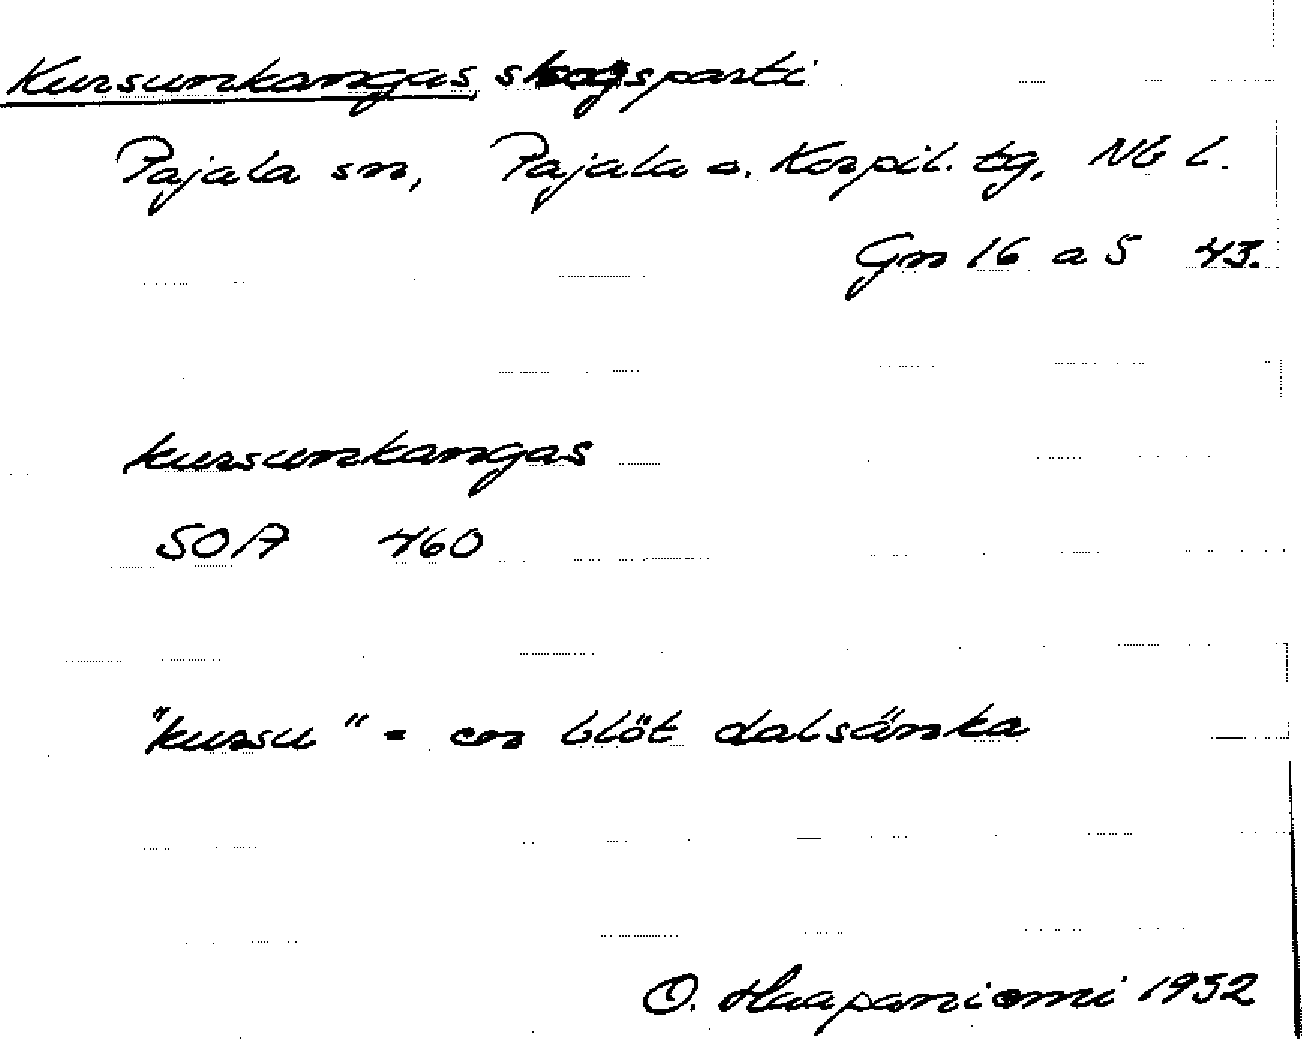 Kursunkangas, skogsparti
Pajala sn, Pajala o. Korpil. tg, Nb l.
Gn 16 a 5 43.
kursunkangas
SOA 460
"kursu" = en blöt dalsänka
O. Haapaniemi 1932